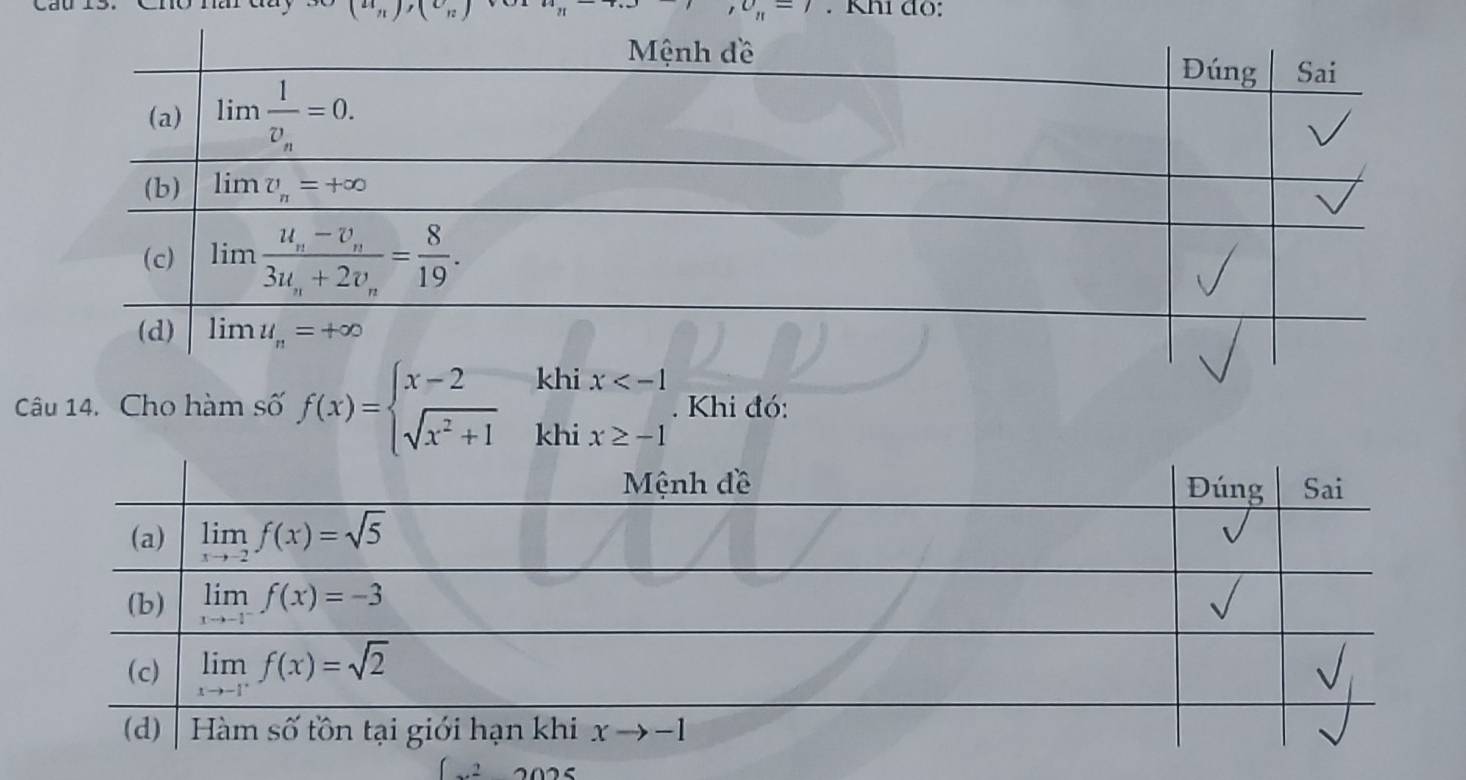 Khi đó:
Mệnh đề | Đúng | Sai
(a) lim 1/vₙ = 0. ✓
(b) lim vₙ = +∞ ✓
(c) lim (uₙ − vₙ)/(3uₙ + 2vₙ) = 8/19. ✓
(d) lim uₙ = +∞ ✓
Câu 14. Cho hàm số f(x) = { x − 2 khi x < −1
√(x² + 1) khi x ≥ −1 . Khi đó:
Mệnh đề | Đúng | Sai
(a) lim x→−2 f(x) = √5 ✓
(b) lim x→−1⁻ f(x) = −3 ✓
(c) lim x→−1⁺ f(x) = √2 ✓
(d) Hàm số tồn tại giới hạn khi x → −1 ✓